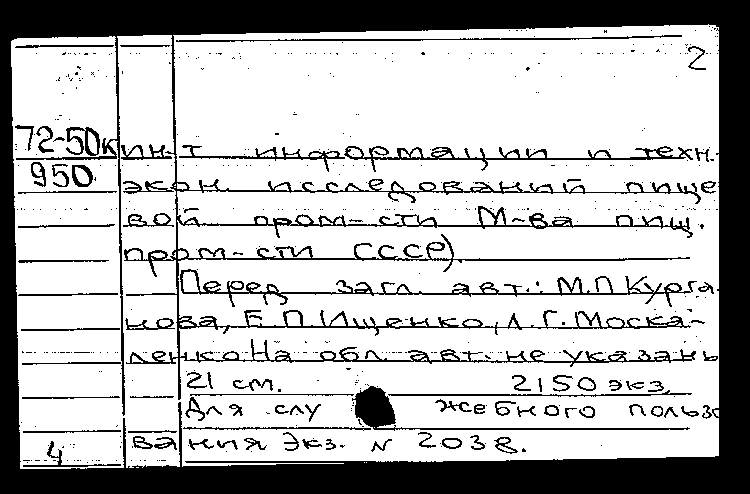 2
72-50к ин-т информации и техн.-
950 экон. исследований пище
вой пром-сти М-ва пищ.
пром-сти СССР).
Перед загл. авт.: М.П Курга-
нова, Е.П.Ищенко, Л.Г.Моска-
ленко.На обл. авт. не указаны
21 см. 2150 экз.
Для служебного пользо
4 вания Экз. N 2038.